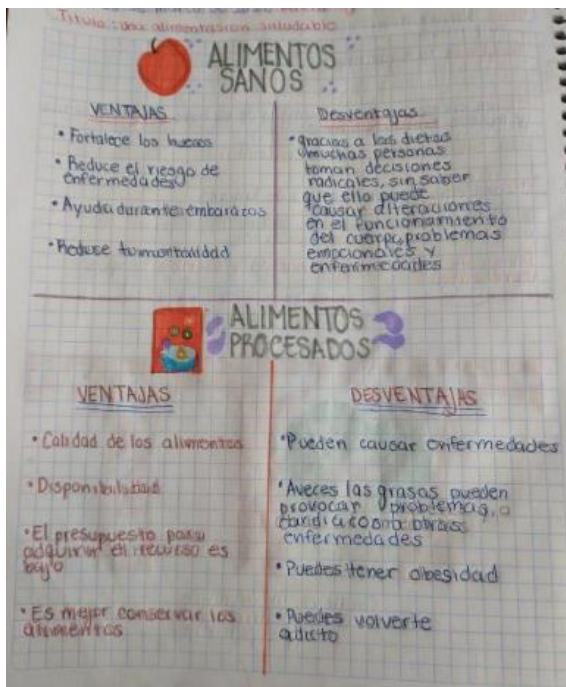 Titulo: una alimentasion saludable
ALIMENTOS
SANOS
VENTAJAS
• Fortalece los huesos
• Reduce el riesgo de
enfermedades
• Ayuda durante embarazos
• Reduce tu mortalidad
Desventajas
• gracias a las dietas
muchas personas
toman decisiones
radicales, sin saber
que ello puede
causar alteraciones
en el funcionamiento
del cuerpo, problemas
emocionales y
enfermedades
ALIMENTOS
PROCESADOS
VENTAJAS
• Calidad de los alimentos
• Disponibilidad
• El presupuesto para
adquirir el recurso es
bajo
• Es mejor conservar los
alimentos
DESVENTAJAS
• Pueden causar enfermedades
• Aveces las grasas pueden
provocar problemas
enfermedades
• Puedes tener obesidad
• Puedes volverte
adicto